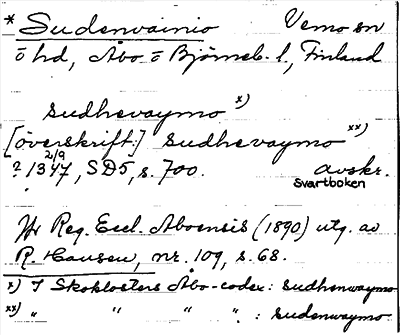 * Sudenvainio Vemo sn
ö hd, Åbo o Björneb. l., Finland
sudhevaymo x)
[överskrift:] sudhevaymo xx)
? 1347 2/9, SD5, s. 700. avskr.
Svartboken
Jfr Reg. Eccl. Aboensis (1890) utg. av
R. Hausen, nr. 109, s. 68.
x) I Skoklosters Åbo-codex: sudhenwaymo
xx) " " " " : sudenwaymo